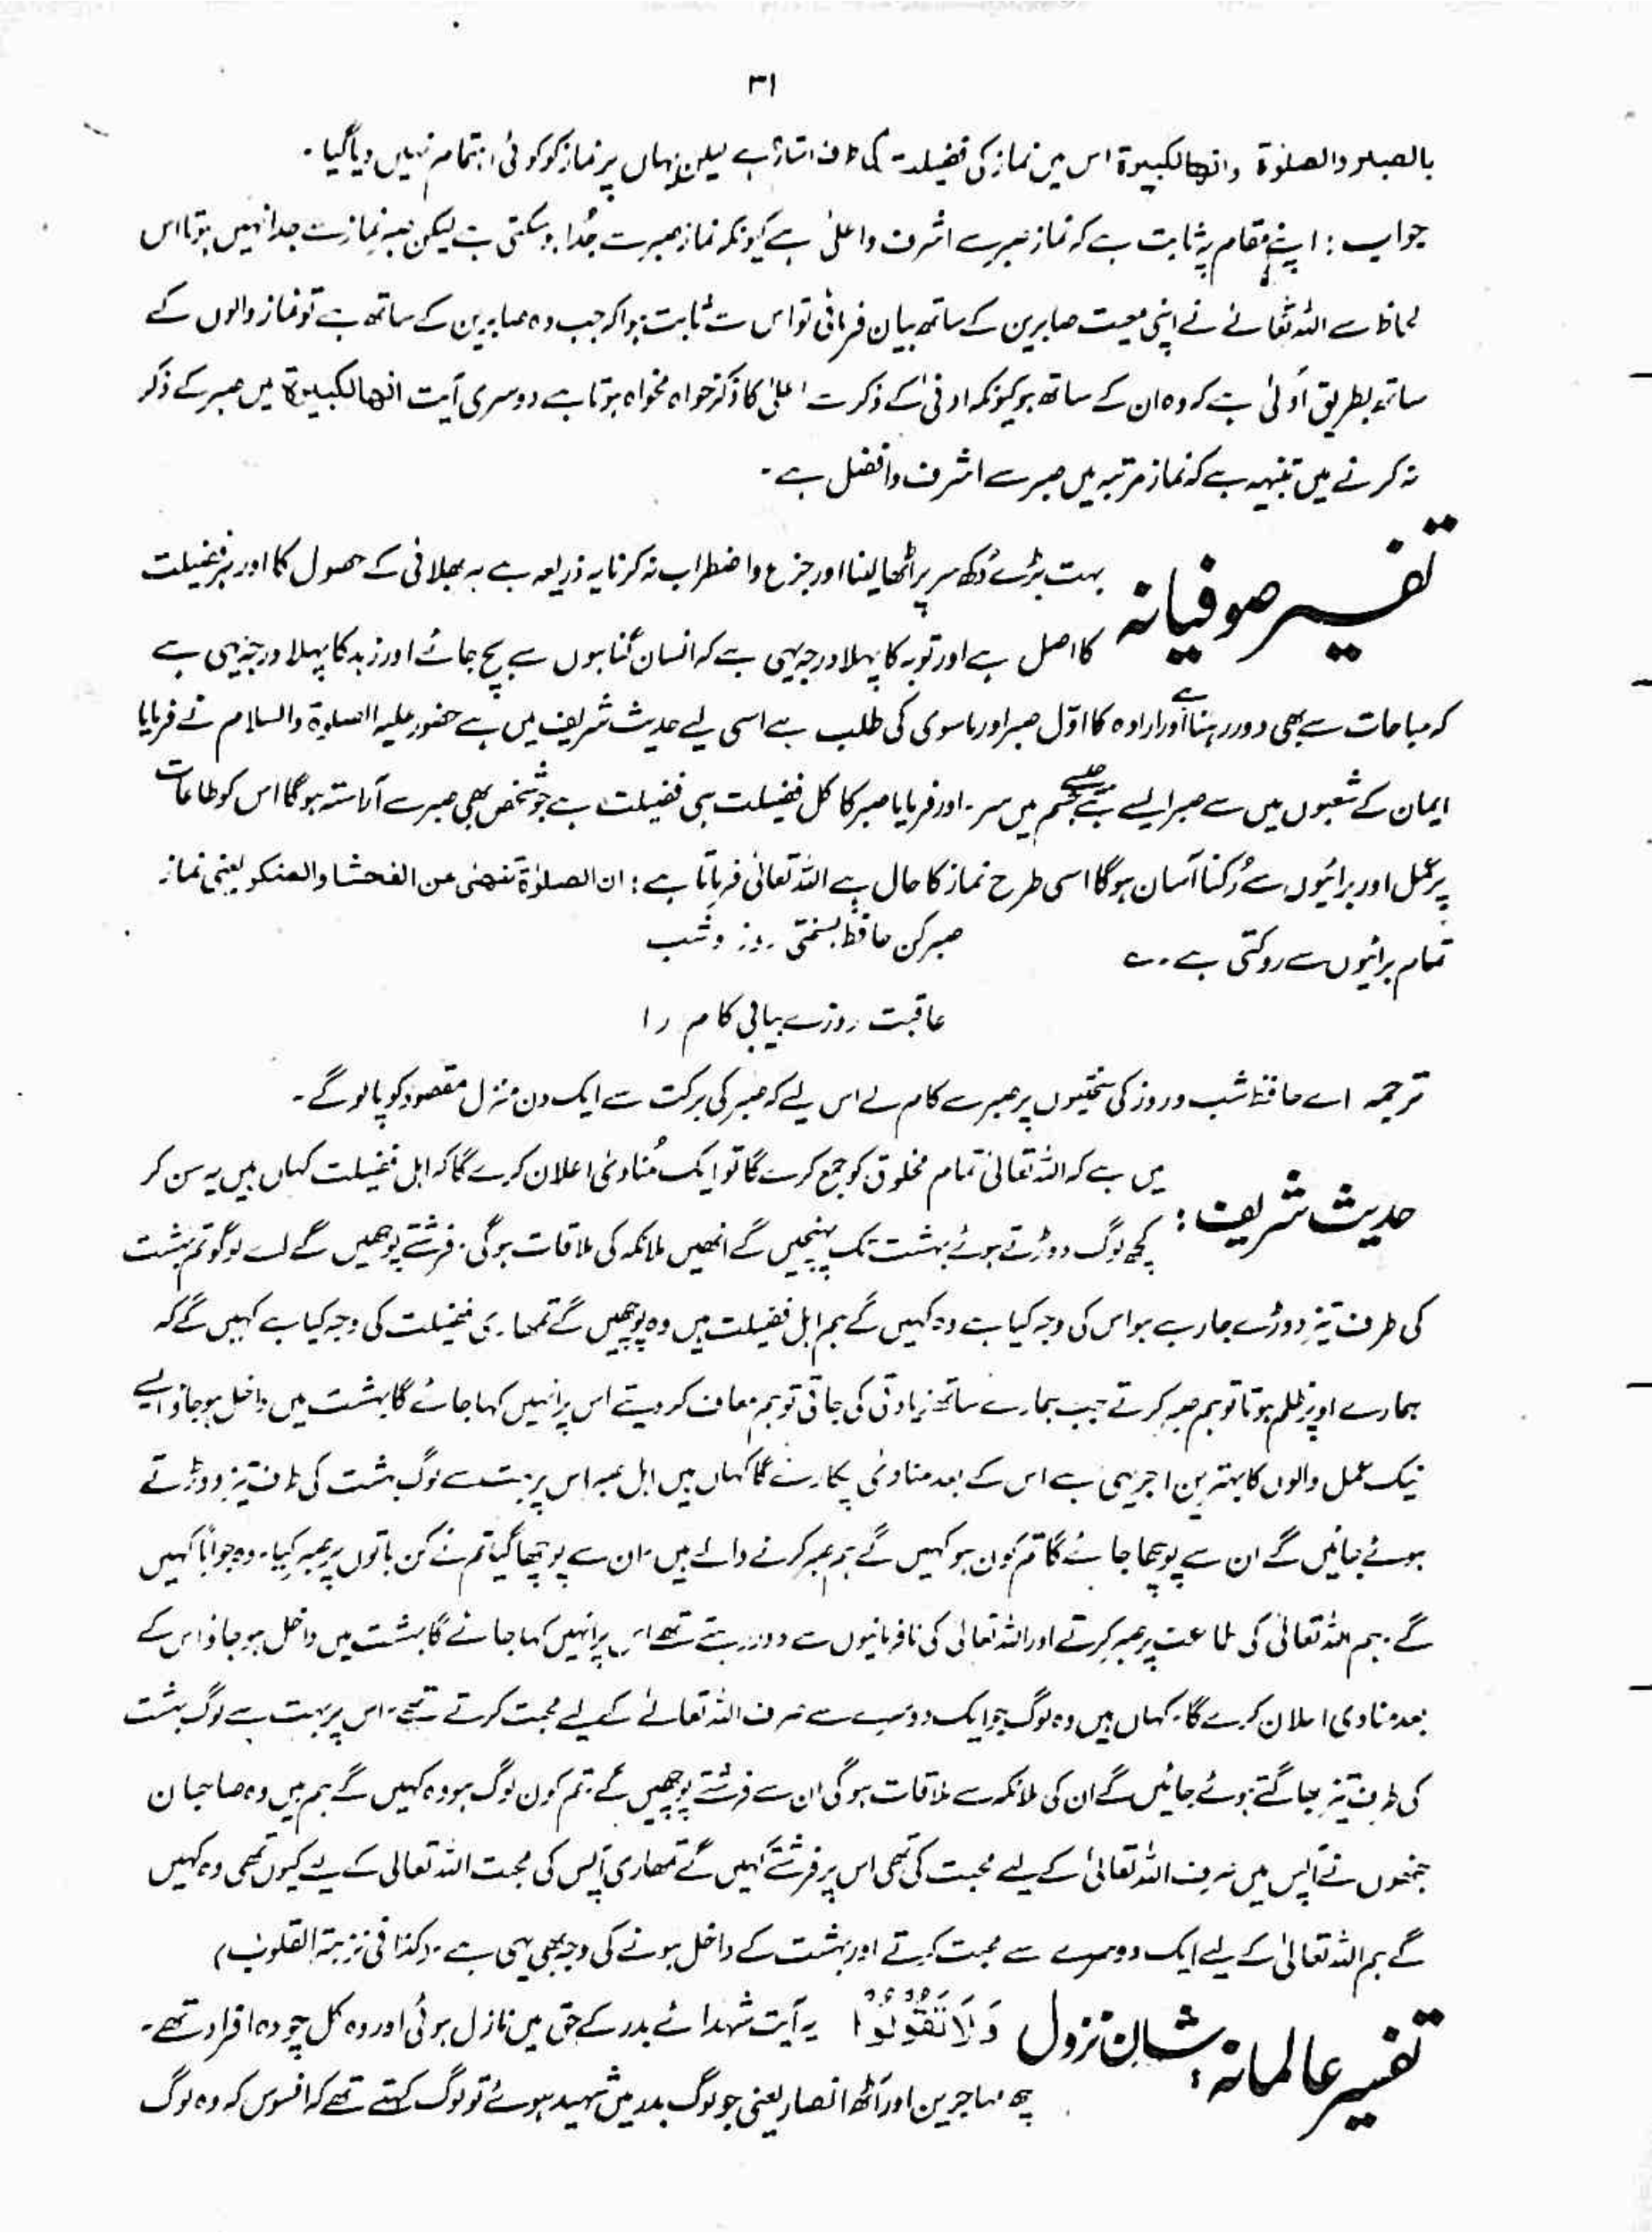 ۳۱
بالصبر والصلوٰۃ وانھا لکبیرۃ اس میں نماز کی فضیلت کی طرف اشارہ ہے لیکن یہاں پر نماز کو کوئی اہتمام نہیں دیا گیا۔
جواب : اپنے مقام پر ثابت ہے کہ نماز صبر سے اشرف و اعلیٰ ہے کیونکہ نماز صبر سے جُدا ہو سکتی ہے لیکن صبر نماز سے جدا نہیں ہوتا اس
لحاظ سے اللہ تعالٰے نے اپنی معیت صابرین کے ساتھ بیان فرمائی تو اس سے ثابت ہوا کہ جب وہ صابرین کے ساتھ ہے تو نماز والوں کے
ساتھ بطریق اَولیٰ ہے کہ وہ ان کے ساتھ ہو کیونکہ ادنیٰ کے ذکر سے اعلیٰ کا ذکر خواہ مخواہ ہوتا ہے دوسری آیت انھا لکبیرۃ میں صبر کے ذکر
نہ کرنے میں تنبیہہ ہے کہ نماز مرتبہ میں صبر سے اشرف و افضل ہے۔
تفسیر صوفیانہ بہت بڑے دُکھ سر پر اُٹھا لینا اور جزع و اضطراب نہ کرنا یہ ذریعہ ہے ہر بھلائی کے حصول کا اور ہر فضیلت
کا اصل ہے اور توبہ کا پہلا درجہ یہی ہے کہ انسان گناہوں سے بچ جائے اور زہد کا پہلا درجہ یہی ہے
کہ مباحات سے بھی دور رہنا ہے اور ارادہ کا اوّل صبر اور ماسوی کی طلب ہے اسی لیے حدیث شریف میں ہے حضور علیہ الصلوۃ والسلام نے فرمایا
ایمان کے شعبوں میں سے صبر ایسے ہے جیسے جسم میں سر۔ اور فرمایا صبر کا کل فضیلت ہی فضیلت ہے جو شخص بھی صبر سے آراستہ ہوگا اس کو طاعات
پر عمل اور برائیوں سے رُکنا آسان ہوگا اسی طرح نماز کا حال ہے اللہ تعالیٰ فرماتا ہے : ان الصلوٰۃ تنھیٰ عن الفحشا والمنکر یعنی نماز
تمام برائیوں سے روکتی ہے۔ ؎
صبر کن حافظ بسختی روز و شب
عاقبت روزے بیابی کام را
ترجمہ اے حافظ شب و روز کی سختیوں پر صبر سے کام لے اس لیے کہ صبر کی برکت سے ایک دن منزل مقصود کو پا لو گے۔
حدیث شریف : میں ہے کہ اللہ تعالیٰ تمام مخلوق کو جمع کرے گا تو ایک مُنادی اعلان کرے گا کہ اہل فضیلت کہاں ہیں یہ سن کر
کچھ لوگ دوڑتے ہوئے بہشت تک پہنچیں گے انھیں ملائکہ کی ملاقات ہوگی۔ فرشتے پوچھیں گے اے لوگو تم بہشت
کی طرف تیز دوڑے جا رہے ہو اس کی وجہ کیا ہے وہ کہیں گے ہم اہل فضیلت ہیں وہ پوچھیں گے تمھاری فضیلت کی وجہ کیا ہے کہیں گے کہ
ہمارے اوپر ظلم ہوتا تو ہم صبر کرتے جب ہمارے ساتھ زیادتی کی جاتی تو ہم معاف کر دیتے اس پر انہیں کہا جائے گا بہشت میں داخل ہو جاؤ ایسے
نیک عمل والوں کا بہترین اجر یہی ہے اس کے بعد منادی پکارے گا کہاں ہیں اہل صبر اس پر بہت سے لوگ بہشت کی طرف تیز دوڑتے
ہوئے جائیں گے ان سے پوچھا جائے گا تم کون ہو کہیں گے ہم صبر کرنے والے ہیں۔ ان سے پوچھا گیا تم نے کن باتوں پر صبر کیا۔ وہ جواباً کہیں
گے۔ ہم اللہ تعالیٰ کی طاعت پر صبر کرتے اور اللہ تعالیٰ کی نافرمانیوں سے دور رہتے تھے اس پر انہیں کہا جائے گا بہشت میں داخل ہو جاؤ اس کے
بعد منادی اعلان کرے گا۔ کہاں ہیں وہ لوگ جو ایک دوسرے سے صرف اللہ تعالٰے کے لیے محبت کرتے تھے۔ اس پر بہت سے لوگ بہشت
کی طرف تیز بھاگتے ہوئے جائیں گے ان کی ملائکہ سے ملاقات ہوگی ان سے فرشتے پوچھیں گے۔ تم کون لوگ ہو وہ کہیں گے ہم ہیں وہ صاحبان
جنھوں نے آپس میں صرف اللہ تعالیٰ کے لیے محبت کی تھی اس پر فرشتے کہیں گے تمھاری آپس کی محبت اللہ تعالی کے لیے کیوں تھی وہ کہیں
گے ہم اللہ تعالیٰ کے لیے ایک دوسرے سے محبت کرتے اور بہشت کے داخل ہونے کی وجہ بھی یہی ہے۔ (کذا فی نزہتہ القلوب)
تفسیر عالمانہ : شان نزول وَلَا تَقُوْلُوْا یہ آیت شہدائے بدر کے حق میں نازل ہوئی اور وہ کل چودہ افراد تھے۔
چھ مہاجرین اور آٹھ انصار یعنی جو لوگ بدر میں شہید ہوئے تو لوگ کہتے تھے کہ افسوس کہ وہ لوگ